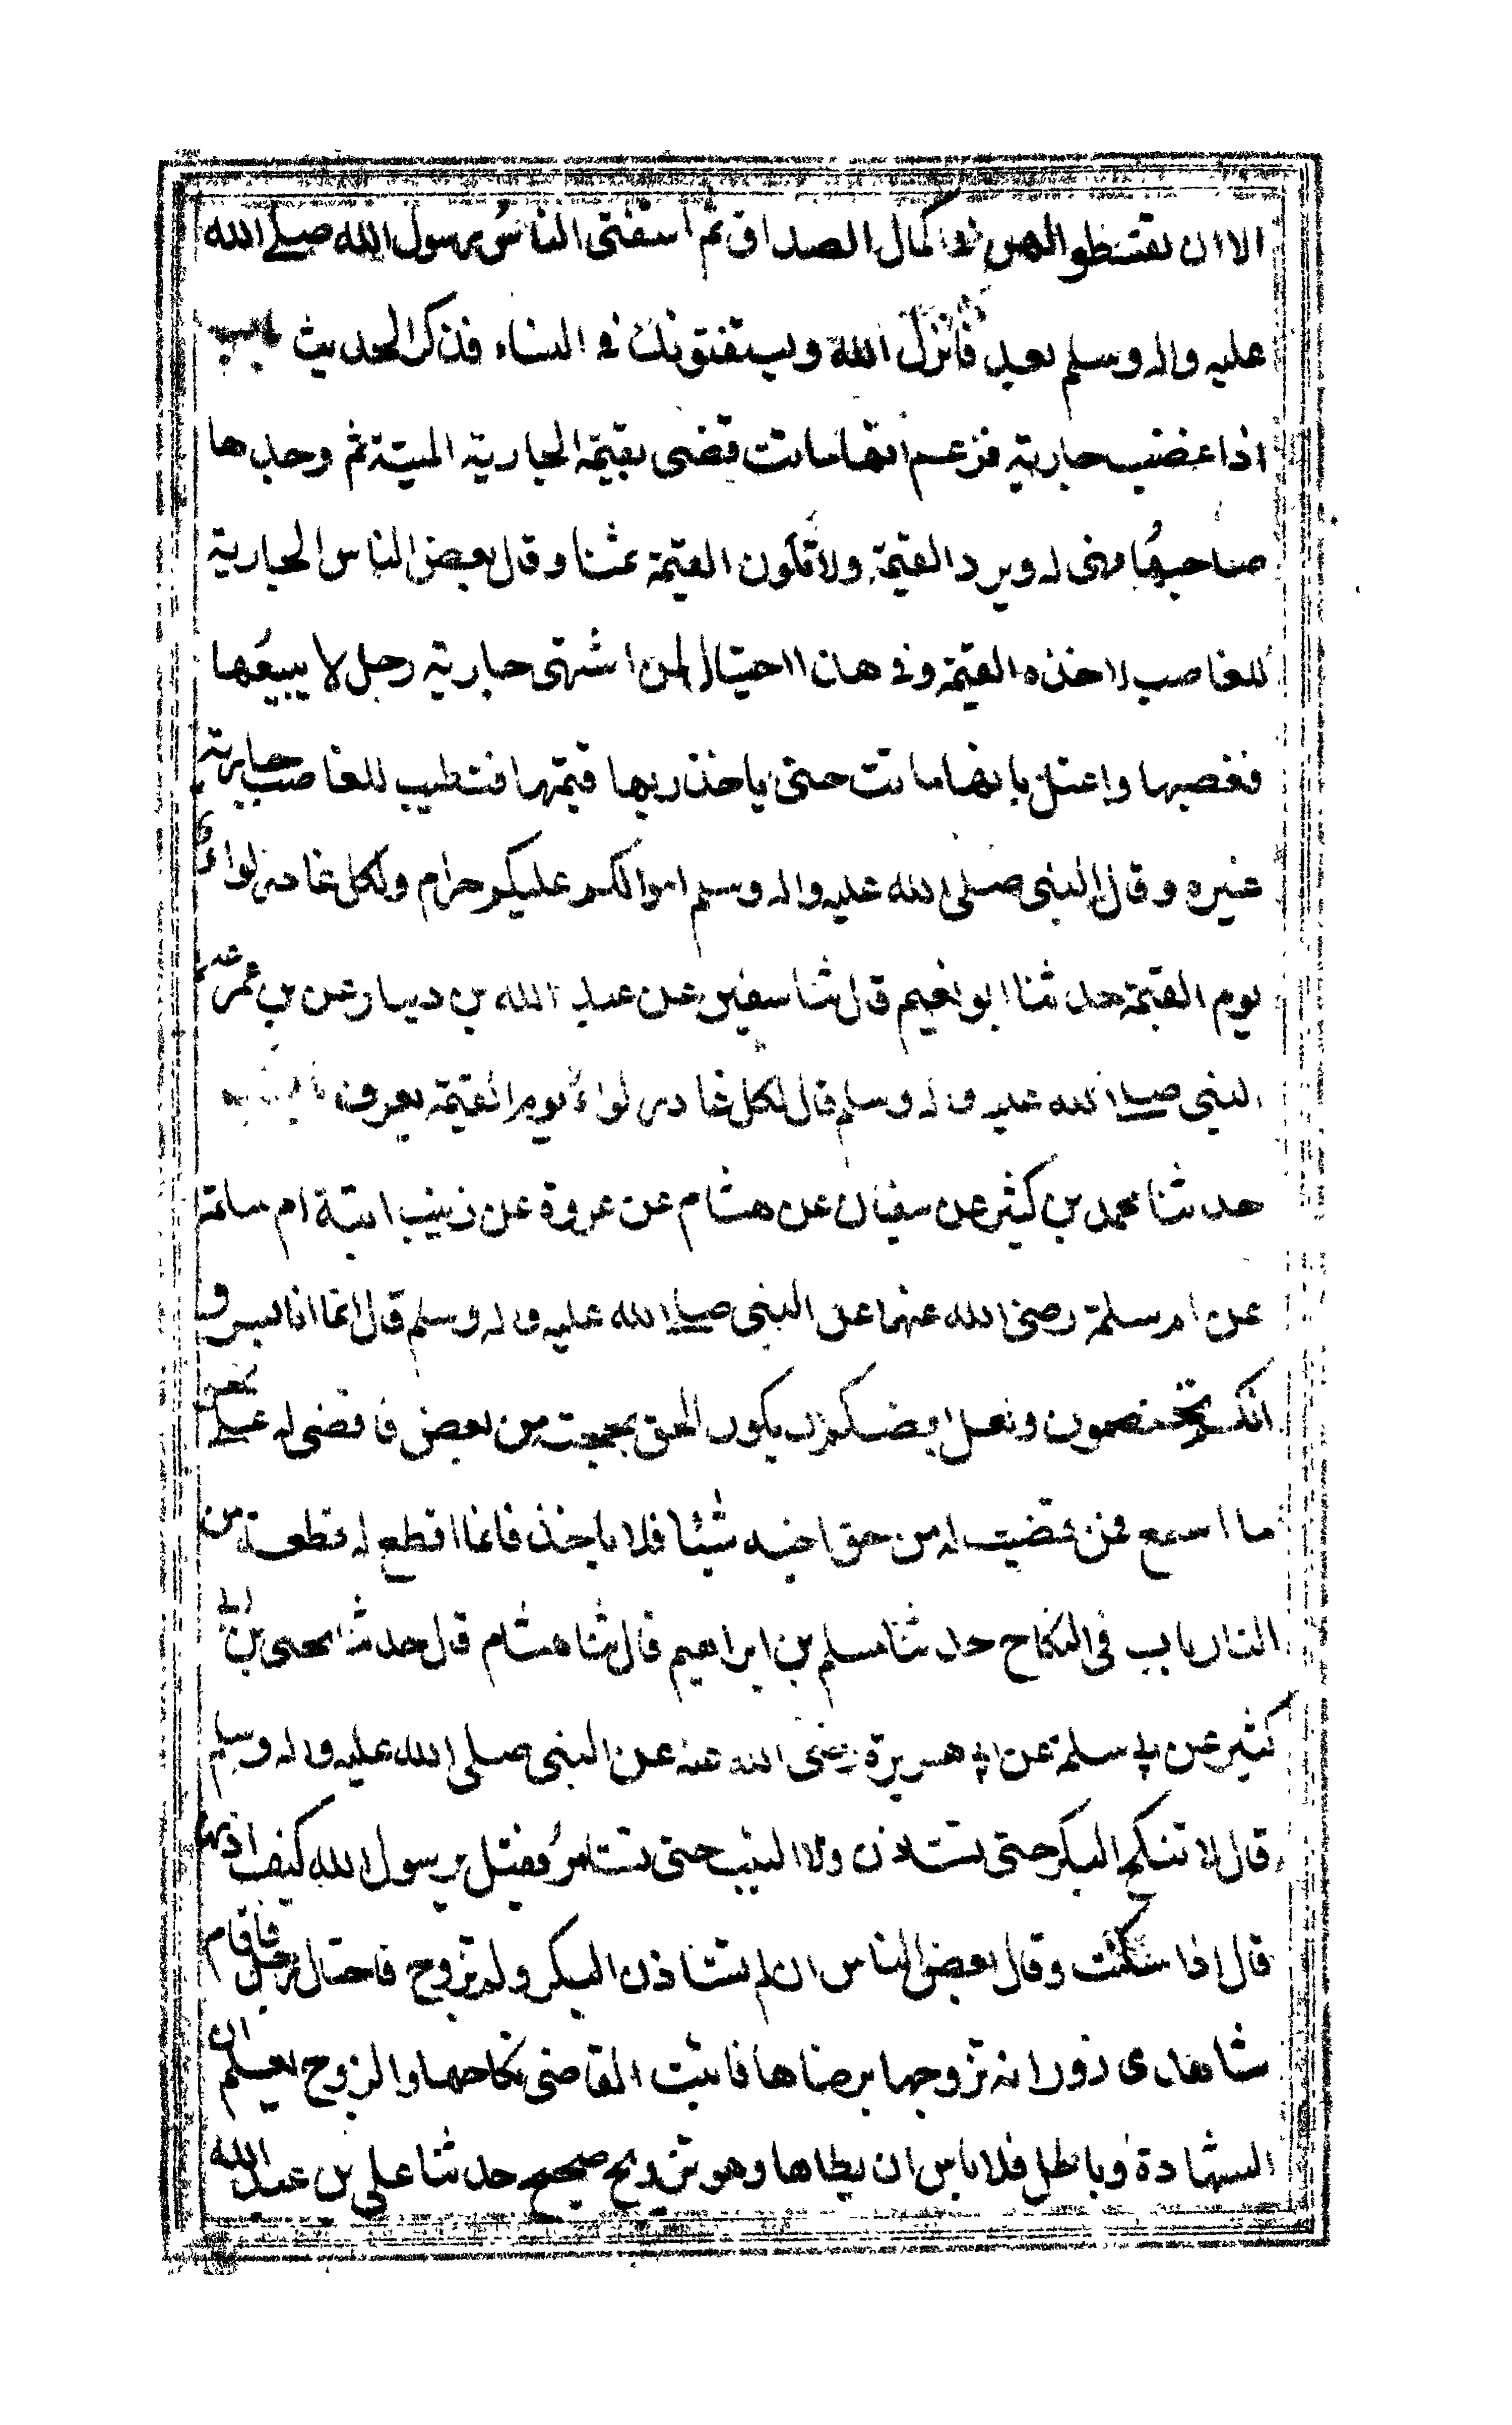 الا ان تقسطوا لهن في اكمال الصداق ثم استفتى الناسُ رسول الله صلى الله
عليه واله وسلم بعد فانزل الله ويستفتونك في النساء فذكر الحديث باب
اذا غضب جارية فزعم انها ماتت فقضى بقيمة الجارية الميتة ثم وجدها
صاحبُها فهى له ويرد القيمة ولا تكون القيمة ثمنا وقال بعض الناس الجارية
للغاصب لاخذه القيمة وفي هذا احتيال لمن اشتهى جارية رجل لا يبيعُها
فغصبها واعتل بانها ماتت حتى ياخذ ربها قيمتها فتطيب للغاصب جارية
غيره وقال النبى صلى الله عليه واله وسلم اموالكم عليكم حرام ولكل غادر لواء
يوم القيمة حدثنا ابو نعيم قال ثنا سفين عن عبد الله بن دينار عن بن عمر عن
النبى صلى الله عليه واله وسلم قال لكل غادر لواءٌ يوم القيمة يعرف باب
حدثنا محمد بن كثير عن سفيان عن هشام عن عروة عن زينب ابنة ام سلمة
عن ام سلمة رضى الله عنهما عن النبى صلى الله عليه واله وسلم قال انما انا بشر و
انكم تختصمون ولعل بعضكم ان يكون الحن بحجته من بعض فاقضى له على نحو
ما اسمع فمن قضيت له من حق اخيه شيئا فلا ياخذ فانما اقطع له قطعة من
النار باب في النكاح حدثنا مسلم بن ابراهيم قال ثنا هشام قال حدثنا يحيى بن ابي
كثير عن ابي سلمة عن ابي هريرة رضى الله عنه عن النبى صلى الله عليه واله وسلم
قال لا تنكح البكر حتى تستاذن ولا الثيب حتى تستامرُ فقيل يرسول الله كيف اذنها
قال اذا سكتت وقال بعض الناس ان لم تستاذن البكر ولم تزوج فاحتال رجل فاقام
شاهدى زورا انه تزوجها برضاها فاثبت القاضى نكاحها والزوج يعلم ان
الشهادة وباطل فلا باس ان يطاها وهو تزويج صحيح حدثنا على بن عبد الله